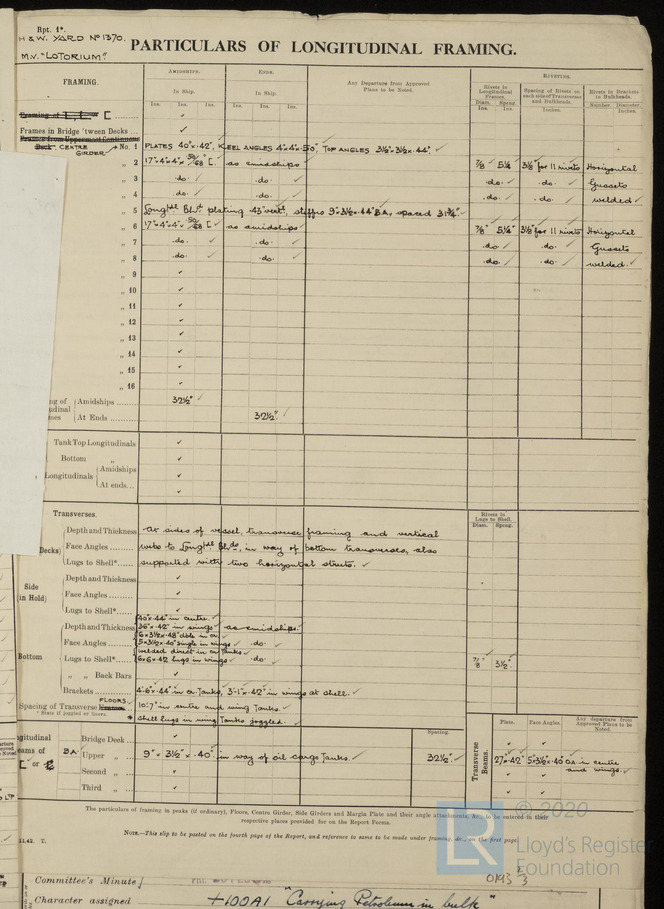 Rpt. 1*.
H & W. YARD No 1370.
M.V. "LOTORIUM".
PARTICULARS OF LONGITUDINAL FRAMING.
FRAMING.
AMIDSHIPS.
ENDS.
Any Departure from Approved Plans to be Noted.
RIVETING.
In Ship.
In Ship.
Rivets in Longitudinal Frames.
Spacing of Rivets on each side of Transverses and Bulkheads.
Rivets in Brackets to Bulkheads.
Ins. Ins. Ins. Ins. Ins. Ins.
Diam. Ins. Spcng. Ins.
Inches.
Number. Diameter Inches.
Frames in Bridge 'tween Decks ...
CENTRE GIRDER No. 1 PLATES 40" x .42", KEEL ANGLES 4"x4"x.50", TOP ANGLES 3½"x3½"x.44".
„ 2 17"x4"x4"x .50/.68 [. as amidships 7/8 5¼ 3½" for 11 rivets Horizontal
„ 3 .do. .do. .do. .do. Gussets
„ 4 .do. .do. .do. .do. welded
„ 5 Longtl. Bhd plating .43" vert., stiffrs 9"x3½"x.44" BA, spaced 31¾".
„ 6 17"x4"x4"x .50/.68 [ as amidships 7/8" 5¼" 3½" for 11 rivets Horizontal
„ 7 .do. .do. .do. .do. Gussets
„ 8 .do. .do. .do. .do. welded.
„ 9
„ 10
„ 11
„ 12
„ 13
„ 14
„ 15
„ 16
Amidships ......... 32½"
At Ends ......... 32½".
Tank Top Longitudinals
Bottom „
Longitudinals
Amidships
At ends...
Transverses.
Rivets in Lugs to Shell.
Diam. Spcng.
Depth and Thickness At sides of vessel, transverse framing and vertical
Decks) Face Angles ........ webs to Longtl. Bhds. in way of bottom transverses, also
Lugs to Shell* ...... supported with two horizontal struts.
Side (in Hold)
Depth and Thickness
Face Angles ........
Lugs to Shell* ......
Bottom
40"x.44" in centre.
Depth and Thickness 36"x.42" in wings as amidships.
Face Angles ........ 5x3½x.40 single in wings .do.
Lugs to Shell* ...... 6x6x.42 lugs in wings .do. 7/8" 3½"
„ „ Back Bars
Brackets ......... 4'-6"x.44" in Tanks, 3'-1"x.42" in wings at shell.
FLOORS.
Spacing of Transverse 10'-7" in centre and wing Tanks.
* State if joggled or liners.
* shell lugs in wing Tanks joggled.
Bridge Deck ...
Spacing.
BA. Upper „ ... 9" x 3½" x .40" in way of oil cargo Tanks. 32½"
Second „ ...
Third „ ...
Transverse Beams.
Plate. Face Angles. Any departure from Approved Plans to be Noted.
27"x.42" 5"x3½"x.40 OA in centre and wings.
The particulars of framing in peaks (if ordinary), Floors, Centre Girder, Side Girders and Margin Plate and their angle attachments, &c., to be entered in their
respective places provided for on the Report Forms.
NOTE.—This slip to be posted on the fourth page of the Report, and reference to same to be made under framing, &c., on the first page.
© 2020
Lloyd's Register
Foundation
0193 2/3
Committee's Minute
Character assigned +100A1 "Carrying Petroleum in bulk"